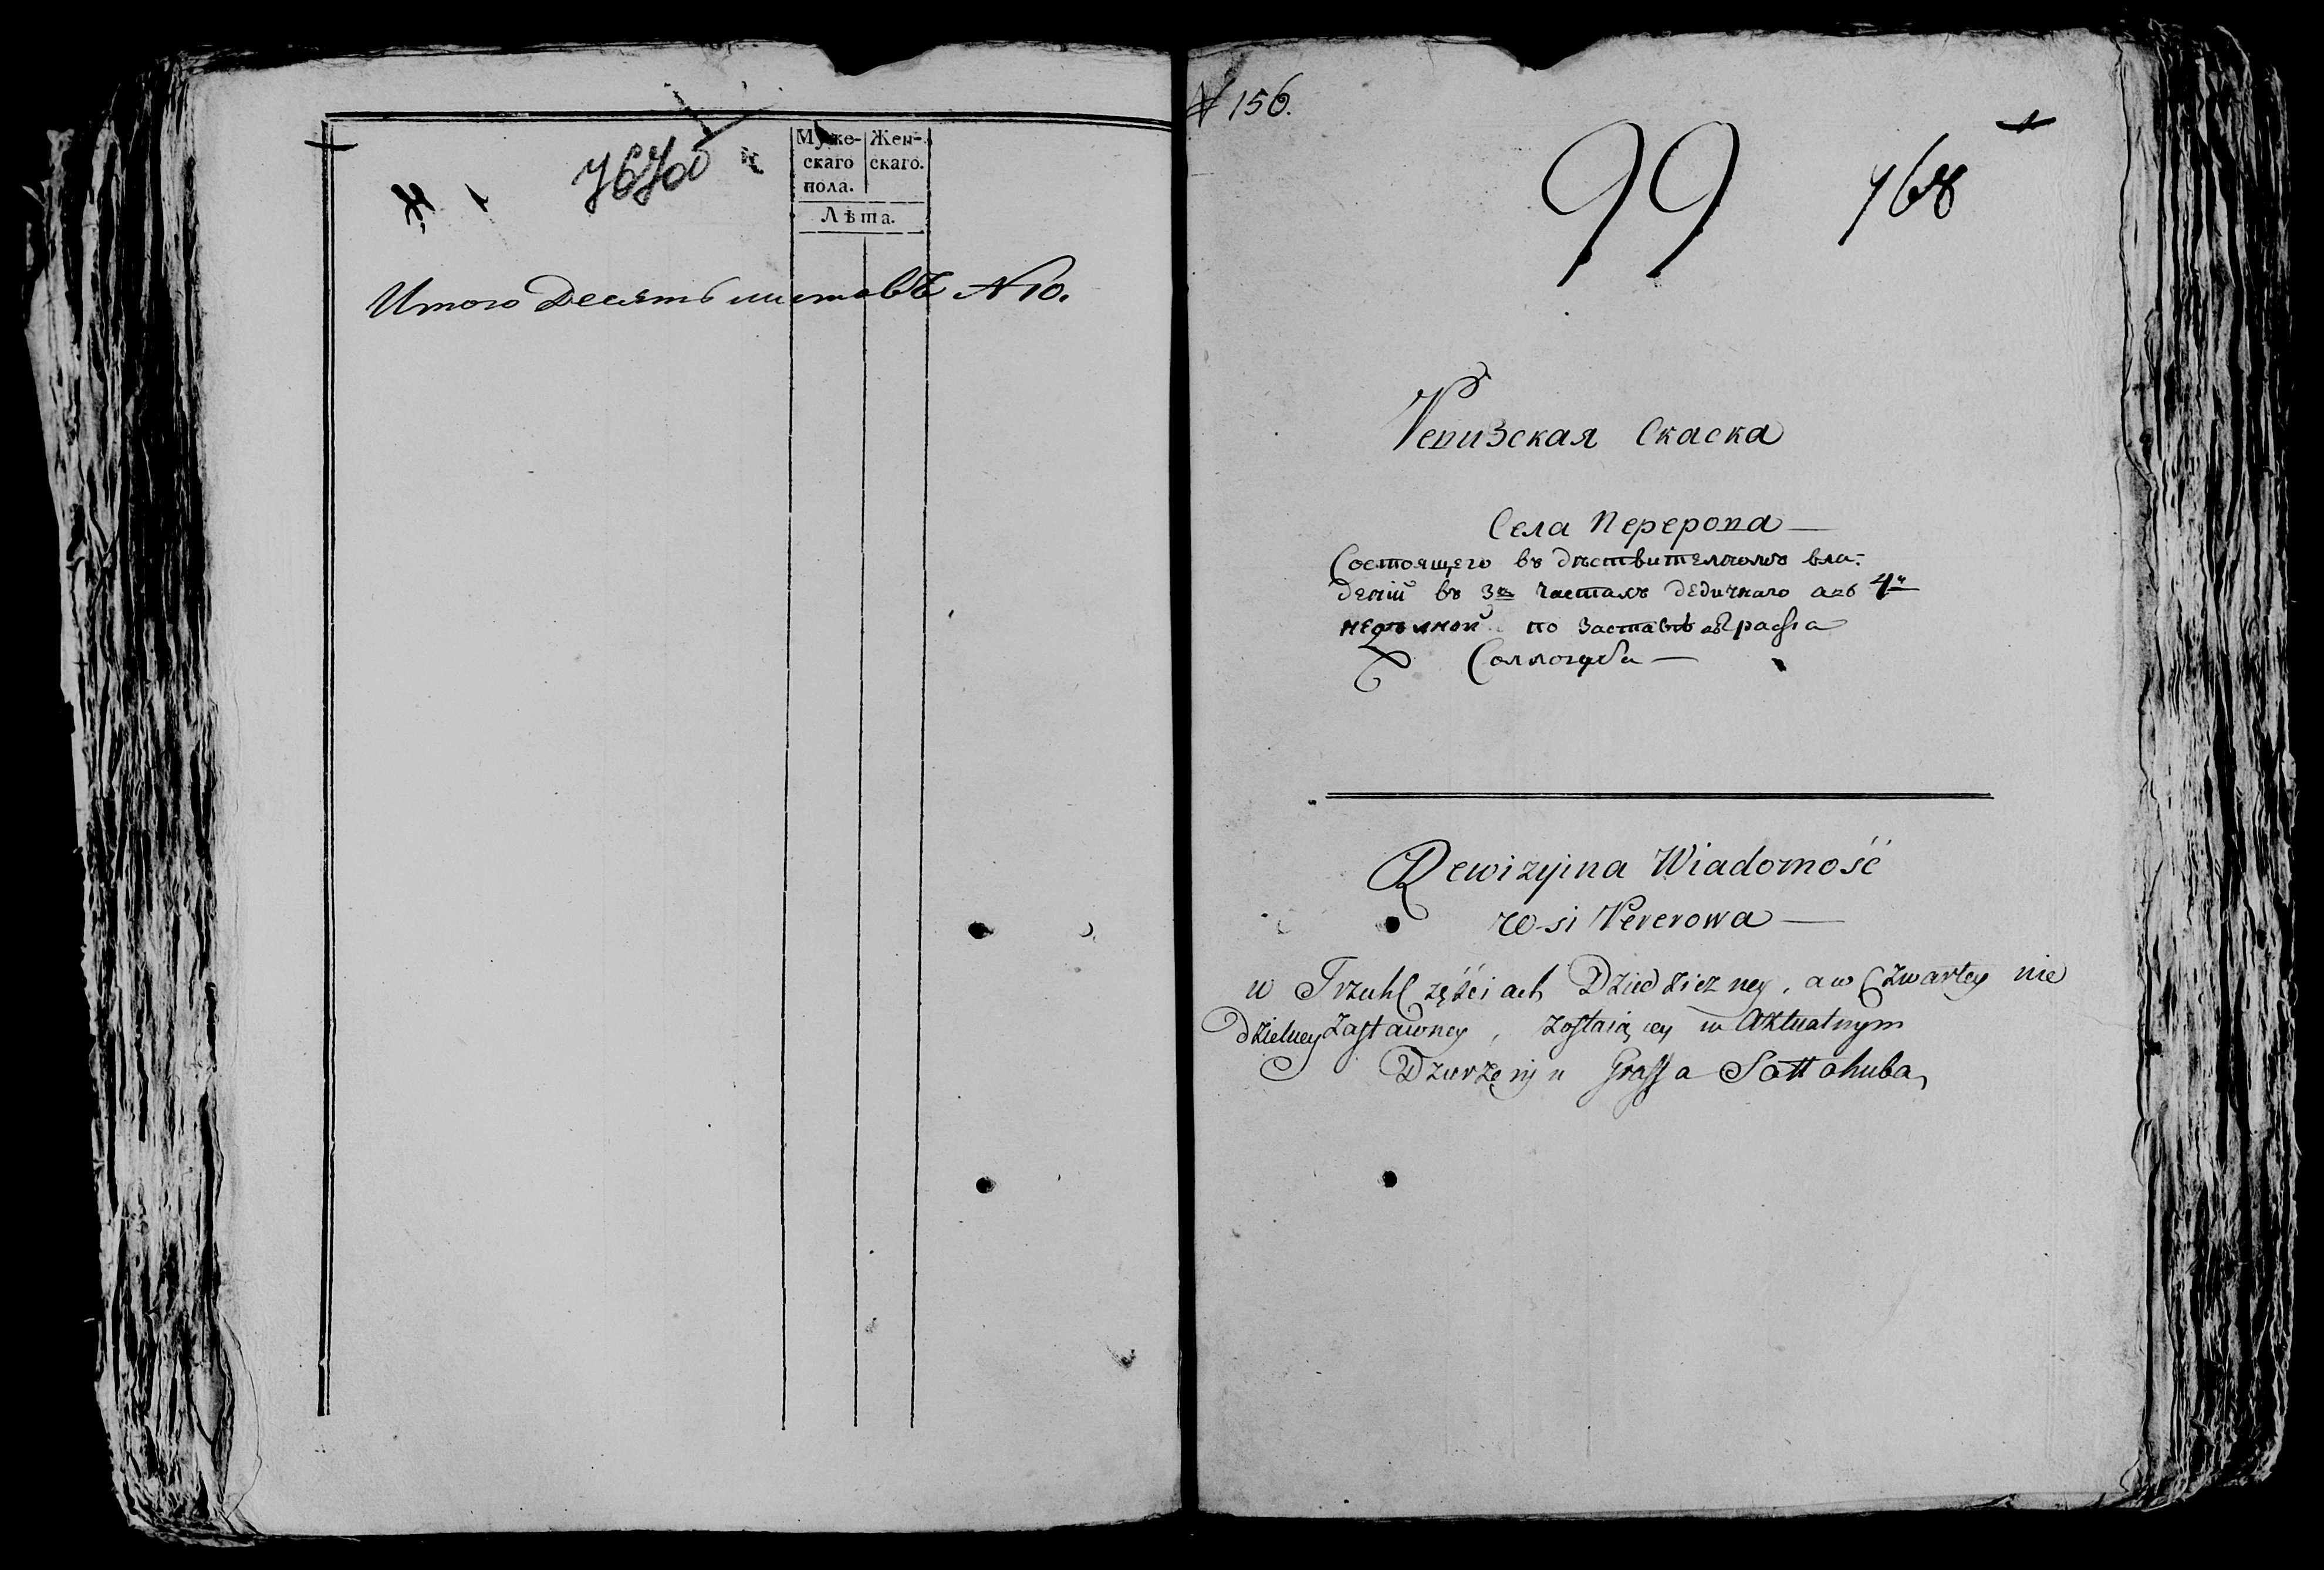 767об
Муже-
скаго
пола.
Жен-
скаго.
Лѣта.
Итого Десять листовъ N 10.
N 156.
99
768
Ревизская Скаска
Села Перерова
Состоящего въ дѣствителномъ вла-
дении въ 3х частахъ дедичнаго авъ 4й
по заставѣ Граффа
Соллогуба
Rewizyina Wiadomość
w-si Pererowa
w Trzech Częściach Dziedziczney, a w Czwartey nie
dzielney Zastawney, zostaiącey w Aktualnym
Dzierżeniu Graffa Sołłohuba